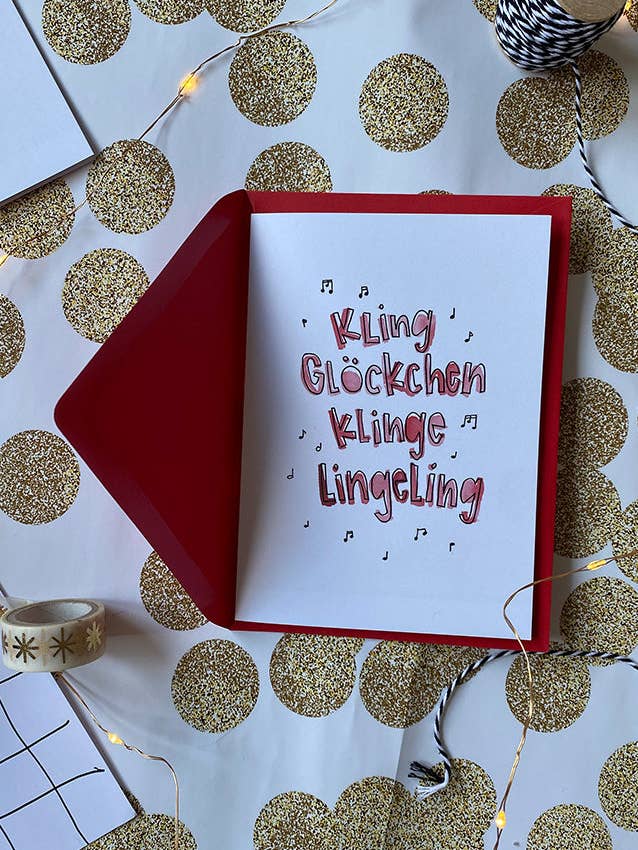 Kling
Glöckchen
Klinge
Lingeling